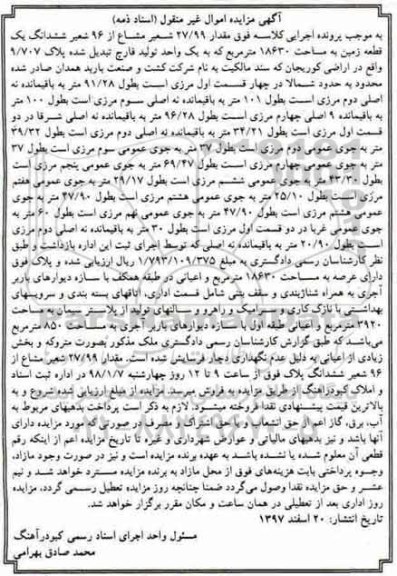 آگهی مزایده اموال غیر منقول (اسناد ذمه)
به موجب پرونده اجرایی کلاسه فوق مقدار ۲۷/۹۹ شعیر مشاع از ۹۶ شعیر ششدانگ یک
قطعه زمین به مساحت ۱۸۶۳۰ مترمربع که به یک واحد تولید قارچ تبدیل شده پلاک ۹/۷۰۷
واقع در اراضی کوریجان که سند مالکیت به نام شرکت کشت و صنعت بارید همدان صادر شده
محدود به حدود شمالا در چهار قسمت اول مرزی است بطول ۹۱/۲۸ متر به باقیمانده نه
اصلی دوم مرزی است بطول ۱۰۱ متر به باقیمانده نه اصلی سوم مرزی است بطول ۱۰۰ متر
به باقیمانده ۹ اصلی چهارم مرزی است بطول ۹۶/۲۸ متر به باقیمانده نه اصلی شرقا در دو
قسمت اول مرزی است بطول ۳۴/۲۱ متر به باقیمانده نه اصلی دوم مرزی است بطول ۳۹/۳۲
متر به جوی عمومی دوم مرزی است بطول ۳۷ متر به جوی عمومی سوم مرزی است بطول ۳۷
متر به جوی عمومی چهارم مرزی است بطول ۶۹/۴۷ متر به جوی عمومی پنجم مرزی است
بطول ۴۳/۳۰ متر به جوی عمومی ششم مرزی است بطول ۲۹/۱۷ متر به جوی عمومی هفتم
مرزی است بطول ۲۵/۱۰ متر به جوی عمومی هشتم مرزی است بطول ۴۷/۹۰ متر به جوی
عمومی هشتم مرزی است بطول ۴۷/۹۰ متر به جوی عمومی نهم مرزی است بطول ۶۰ متر به
جوی عمومی غربا در دو قسمت اول مرزی است بطول ۳۰ متر به باقیمانده نه اصلی دوم مرزی
است بطول ۲۰/۹۰ متر به باقیمانده نه اصلی که توسط اجرای ثبت این اداره بازداشت و طبق
نظر کارشناسان رسمی دادگستری به مبلغ ۱/۷۹۳/۱۰۹/۳۷۵ ریال ارزیابی شده و پلاک فوق
دارای عرصه به مساحت ۱۸۶۳۰ مترمربع و اعیانی در طبقه همکف با سازه دیوارهای باربر
آجری به همراه شناژبندی و سقف بتنی شامل قسمت اداری، اتاقهای بسته بندی و سرویسهای
بهداشتی با نازک کاری و سرامیک و راهرو و سالنهای تولید از پلاستر سیمان به مساحت
۳۹۲۰ مترمربع و اعیانی طبقه اول با سازه دیوارهای باربر آجری به مساحت ۸۵۰ مترمربع
می‌باشد که طبق گزارش کارشناسان رسمی دادگستری ملک مذکور بصورت متروکه و بخش
زیادی از اعیانی به دلیل عدم نگهداری دچار فرسایش شده است. مقدار ۲۷/۹۹ شعیر مشاع از
۹۶ شعیر ششدانگ پلاک فوق از ساعت ۹ تا ۱۲ روز چهارشنبه ۹۸/۱/۷ در اداره ثبت اسناد
و املاک کبودرآهنگ از طریق مزایده به فروش میرسد. مزایده از مبلغ ارزیابی شده شروع و به
بالاترین قیمت پیشنهادی نقدا فروخته میشود. لازم به ذکر است پرداخت بدهیهای مربوط به
آب، برق، گاز اعم از حق انشعاب و یا حق اشتراک و مصرف در صورتی که مورد مزایده دارای
آنها باشد و نیز بدهیهای مالیاتی و عوارض شهرداری و غیره تا تاریخ مزایده اعم از اینکه رقم
قطعی آن معلوم شده یا نشده باشد به عهده برنده مزایده است و نیز در صورت وجود مازاد،
وجوه پرداختی بابت هزینه‌های فوق از محل مازاد به برنده مزایده مسترد خواهد شد و نیم
عشر و حق مزایده نقدا وصول می‌گردد ضمنا چنانچه روز مزایده تعطیل رسمی گردد، مزایده
روز اداری بعد از تعطیلی در همان ساعت و مکان مقرر برگزار خواهد شد.
تاریخ انتشار: ۲۰ اسفند ۱۳۹۷
مسئول واحد اجرای اسناد رسمی کبودرآهنگ
محمد صادق بهرامی